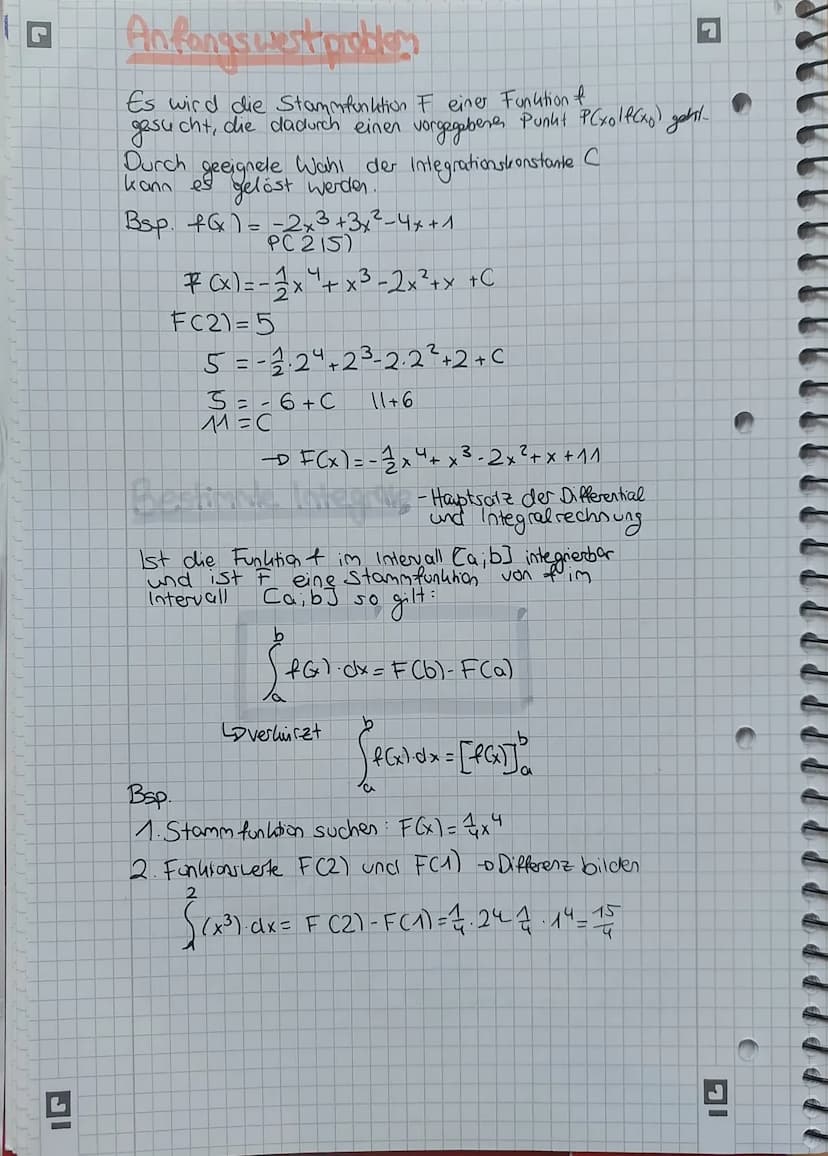 Anfangswertproblem
Es wird die Stammfunktion F einer Funktion f
gesucht, die dadurch einen vorgegebenen Punkt P(x₀|f(x₀) geht.
Durch geeignete Wahl der Integrationskonstante C
kann es gelöst werden.
Bsp. f(x) = -2x³+3x²-4x+1
P(2|5)
F(x)=-½x⁴+x³-2x²+x +C
F(2)=5
5 = -½·2⁴+2³-2·2²+2+C
5 = -6+C ||+6
11=C
→ F(x)=-½x⁴+x³-2x²+x+11
Bestimmte Integrale - Hauptsatz der Differential
und Integralrechnung
Ist die Funktion f im Intervall [a;b] integrierbar
und ist F eine Stammfunktion von f im
Intervall [a;b] so gilt:
∫ₐᵇ f(x)·dx=F(b)-F(a)
↳ verkürzt ∫ₐᵇ f(x)·dx=[f(x)]ₐᵇ
Bsp.
1. Stammfunktion suchen: F(x)=¼x⁴
2. Funktionswerte F(2) und F(1) → Differenz bilden
∫₁² (x³)·dx= F(2)-F(1)=¼·2⁴-¼·1⁴=15/4